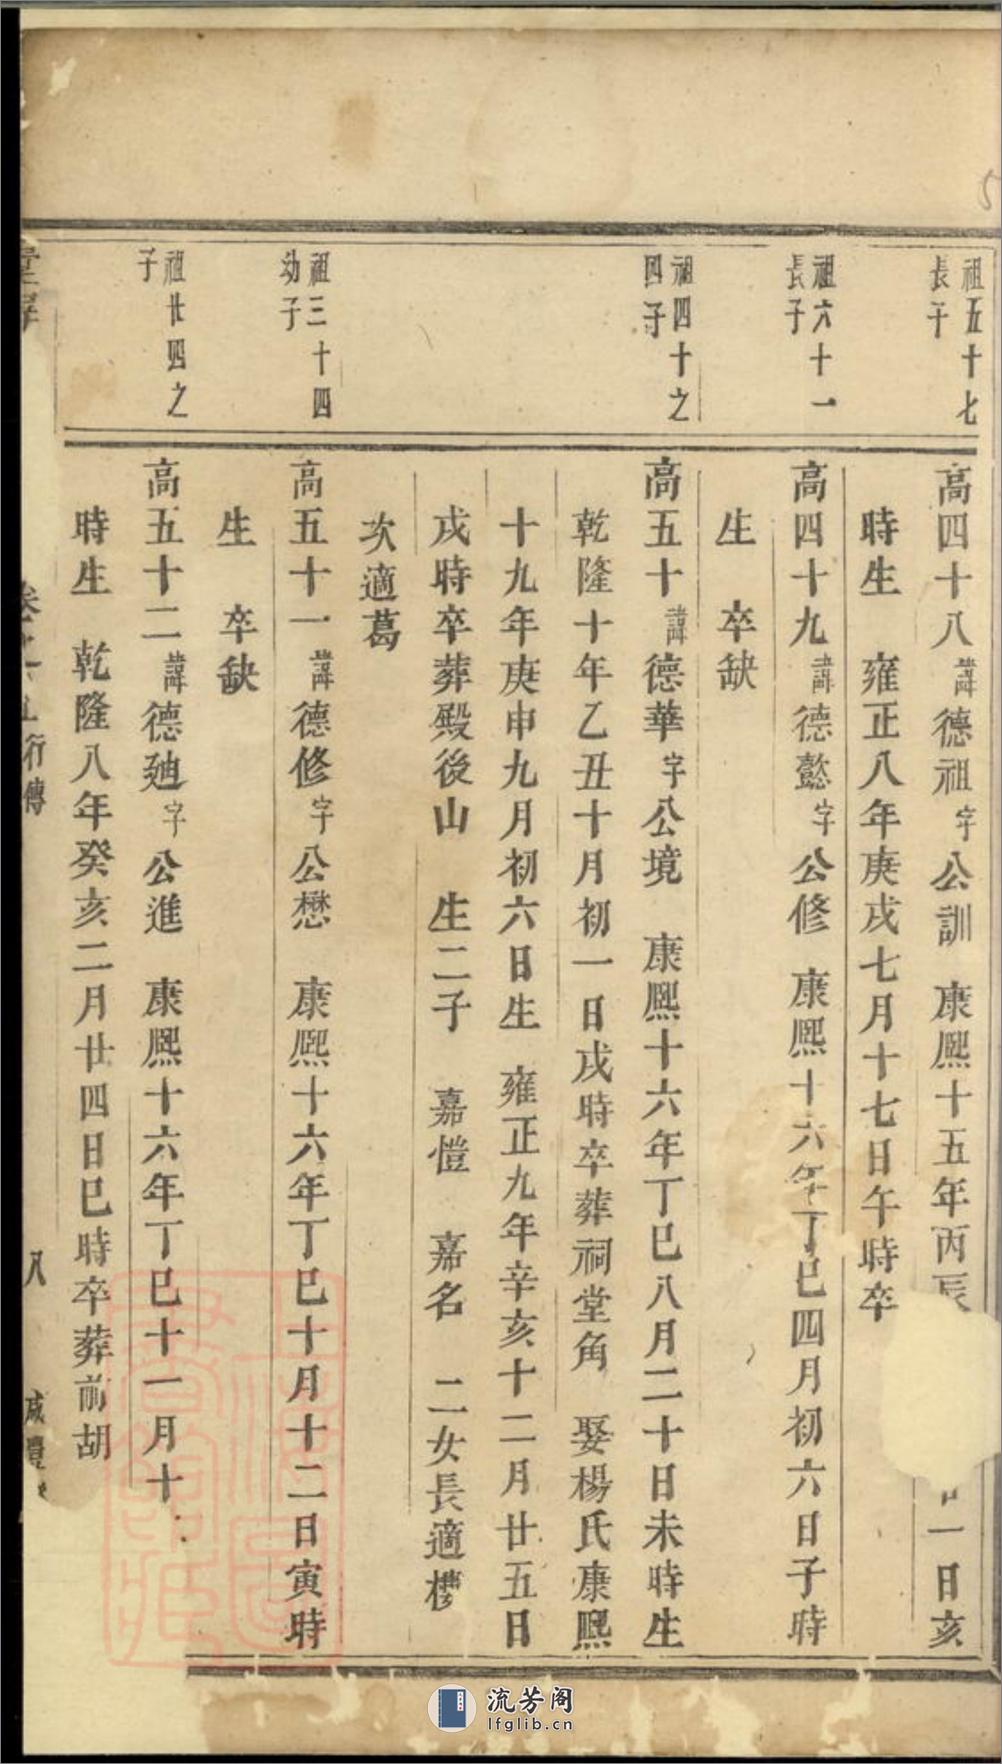 祖五十七
長子
高四十八諱德祖字公訓 康熙十五年丙辰 一日亥
時生 雍正八年庚戌七月十七日午時卒
祖六十一
長子
高四十九諱德懿字公修 康熙十六年丁巳四月初六日子時
生 卒缺
祖四十之
四子
高五十諱德華字公境 康熙十六年丁巳八月二十日未時生
乾隆十年乙丑十月初一日戌時卒葬祠堂角 娶楊氏康熙
十九年庚申九月初六日生 雍正九年辛亥十二月廿五日
戌時卒葬殿後山 生二子 嘉愷 嘉名 二女長適樓
次適葛
祖三十四
幼子
高五十一諱德修字公懋 康熙十六年丁巳十月十二日寅時
生 卒缺
祖廿四之
子
高五十二諱德廸字公進 康熙十六年丁巳十一月十
時生 乾隆八年癸亥二月廿四日巳時卒葬前胡
行傳
八
咸豐
流芳阁
lfglib.cn